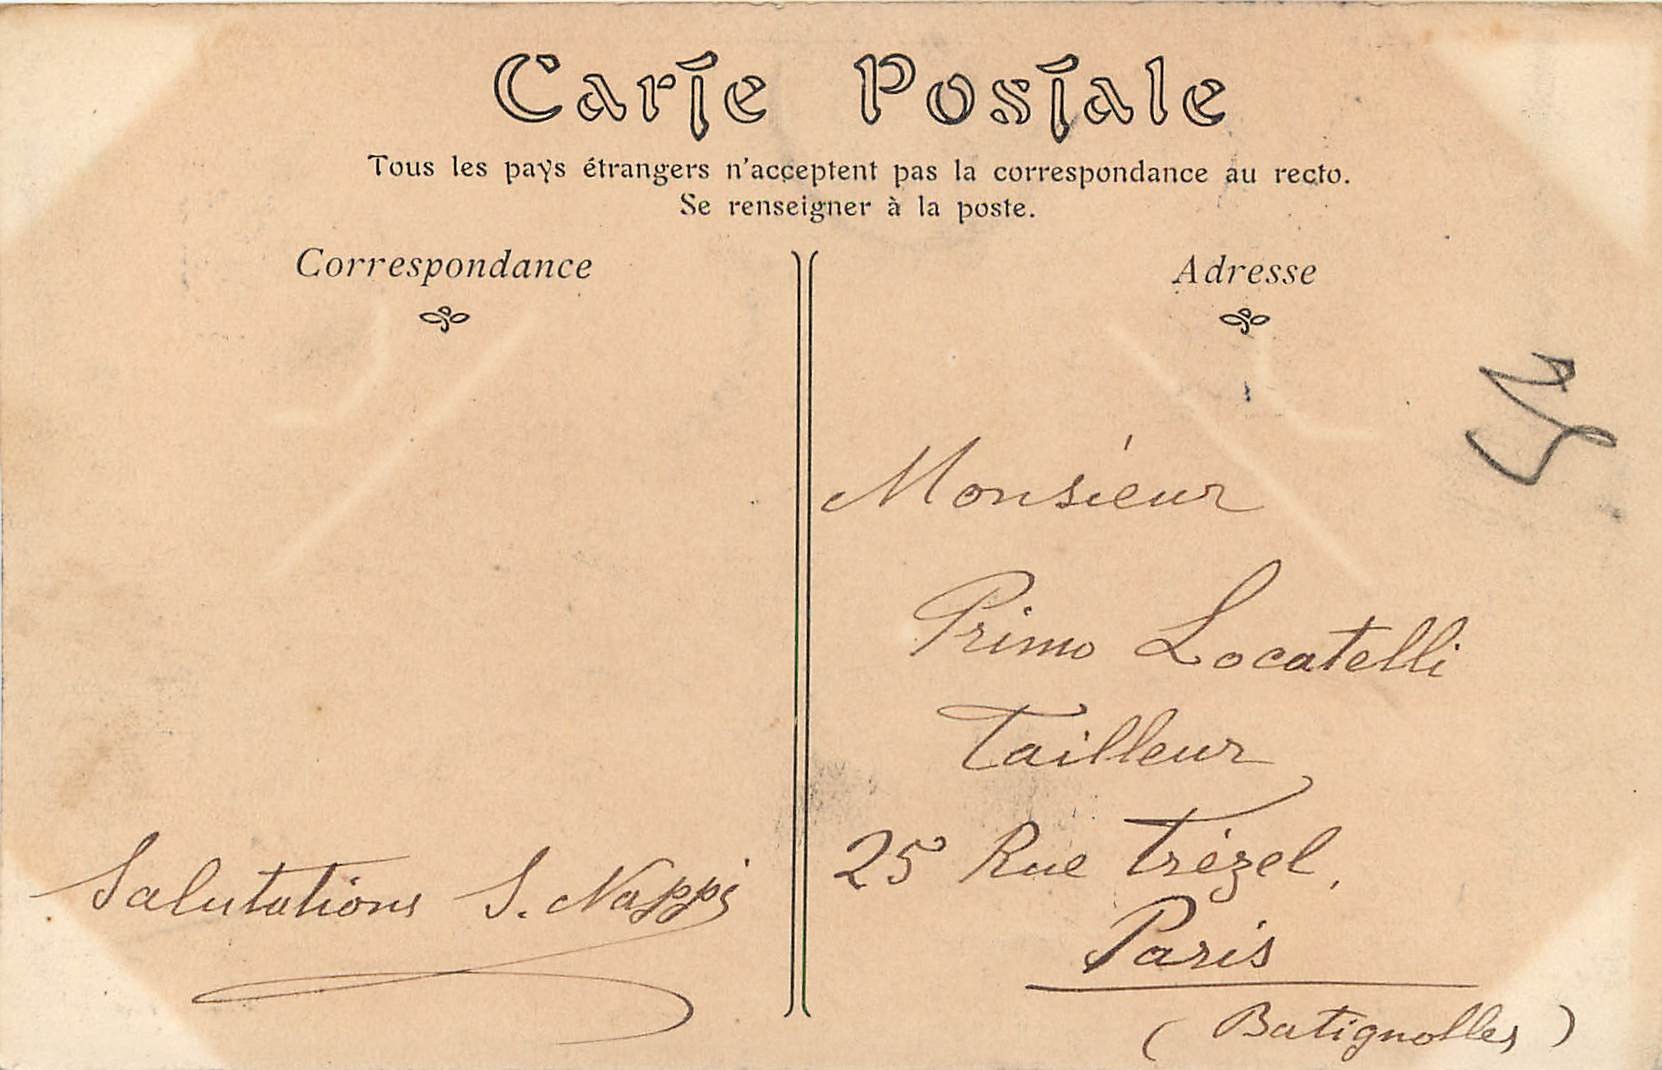 Carte Postale
Tous les pays étrangers n'acceptent pas la correspondance au recto.
Se renseigner à la poste.
Correspondance
Salutations S. Nappi
Adresse
Monsieur
Primo Locatelli
Tailleur
25 Rue Trézel,
Paris
(Batignolles)